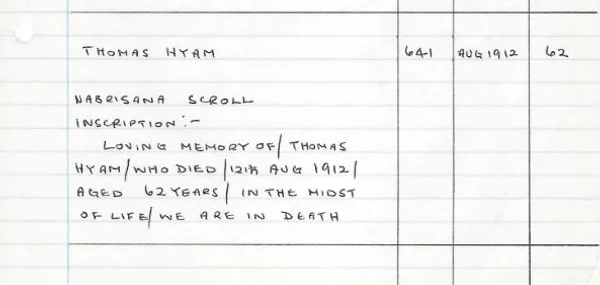 THOMAS HYAM 641 AUG 1912 62
NABRISANA SCROLL
INSCRIPTION:-
LOVING MEMORY OF/ THOMAS
HYAM/ WHO DIED /12th AUG 1912/
AGED 62 YEARS/ IN THE MIDST
OF LIFE/ WE ARE IN DEATH